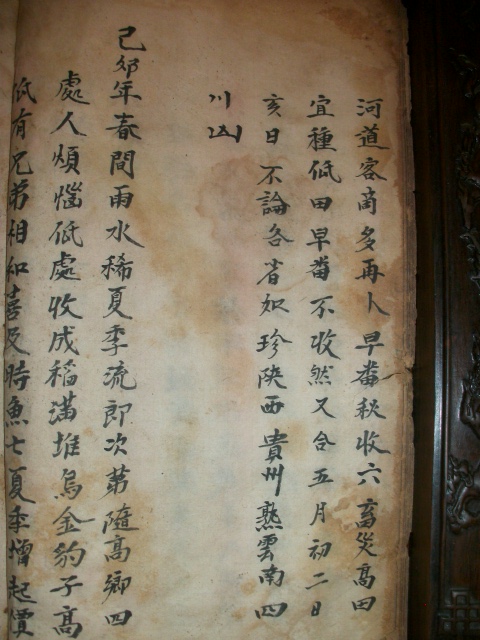 河道客商多再卜早畨秋收六畜災高田
宜種低田早畨不收然又合五月初二日
亥日不論各省如珍陕西貴州熟雲南四
川凶
己夘年春間雨水稀夏季流郎次第隨高鄉四
處人煩惱低處收成稲满堆烏金豹子高
低有兄弟相知喜及時魚七夏季增起價